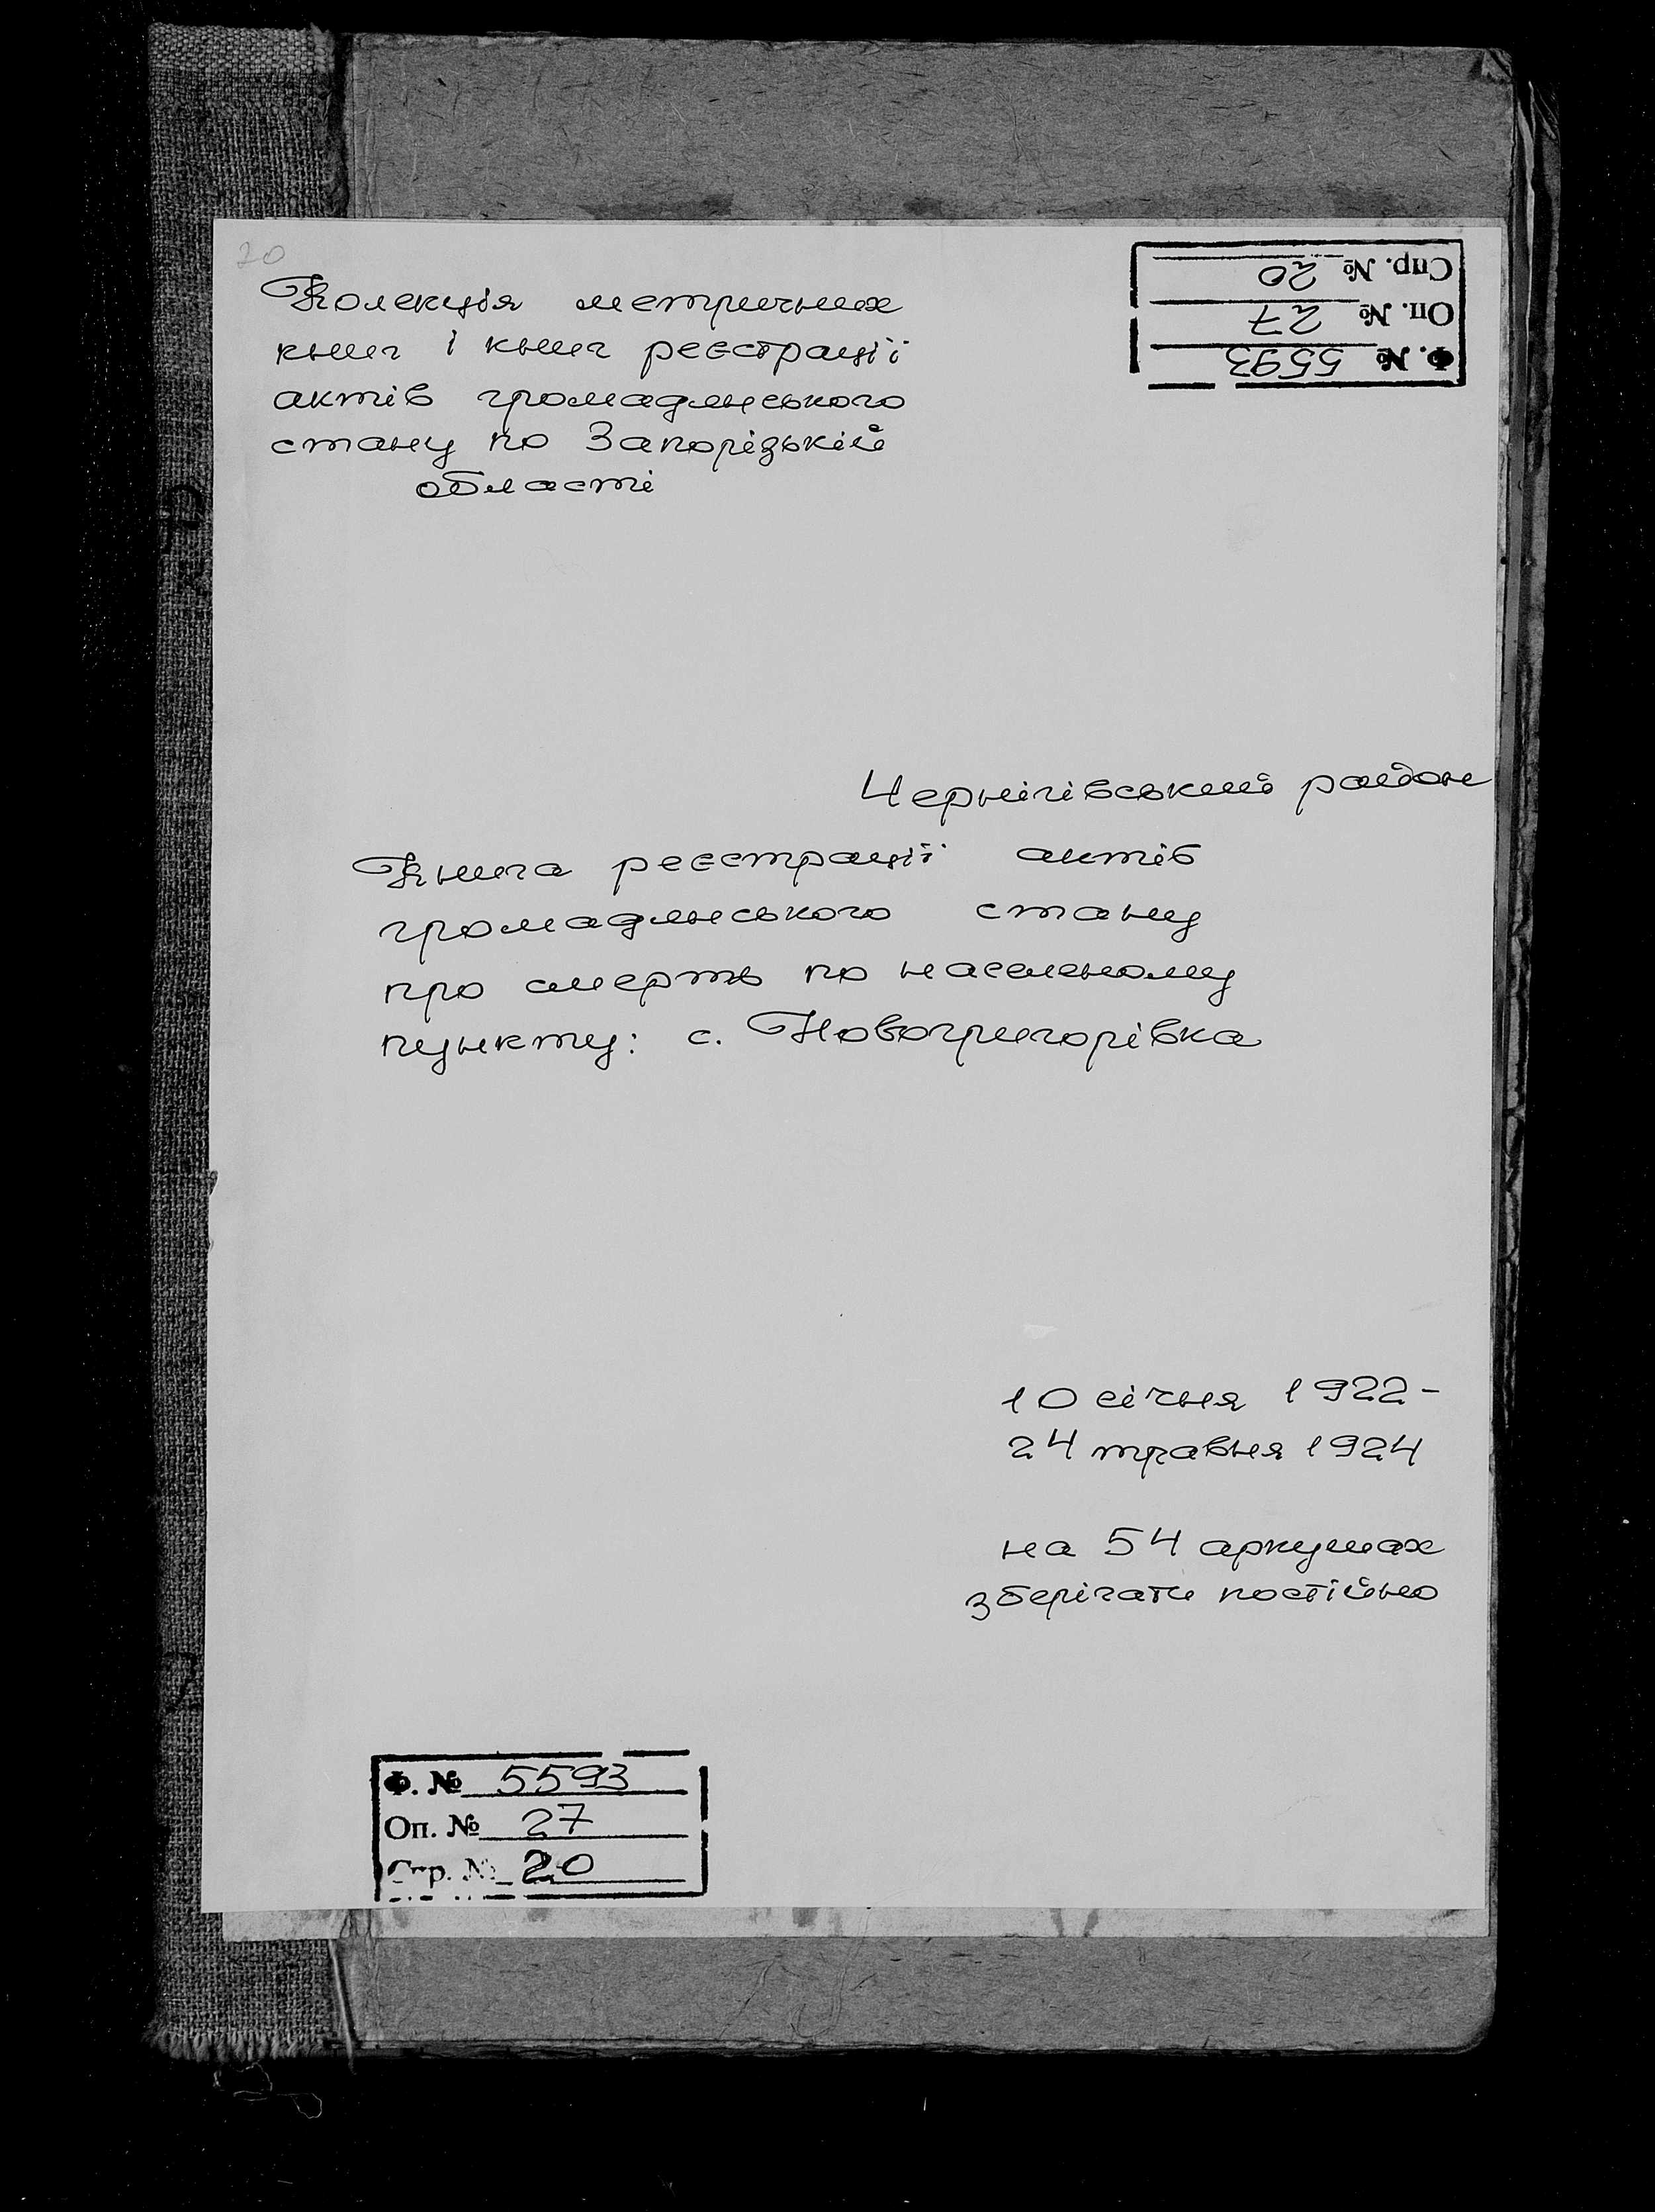 20
Колекція метричних
книг і книг реєстрації
актів громадянського
стану по Запорізькій
області
Спр. № 20
Оп. № 27
Ф. № 5593
Чернігівський район
Книга реєстрації актів
громадянського стану
про смерть по населеному
пункту: с. Новогригорівка
10 січня 1922-
24 травня 1924
на 54 аркушах
зберігати постійно
Ф. № 5593
Оп. № 27
Спр. № 20